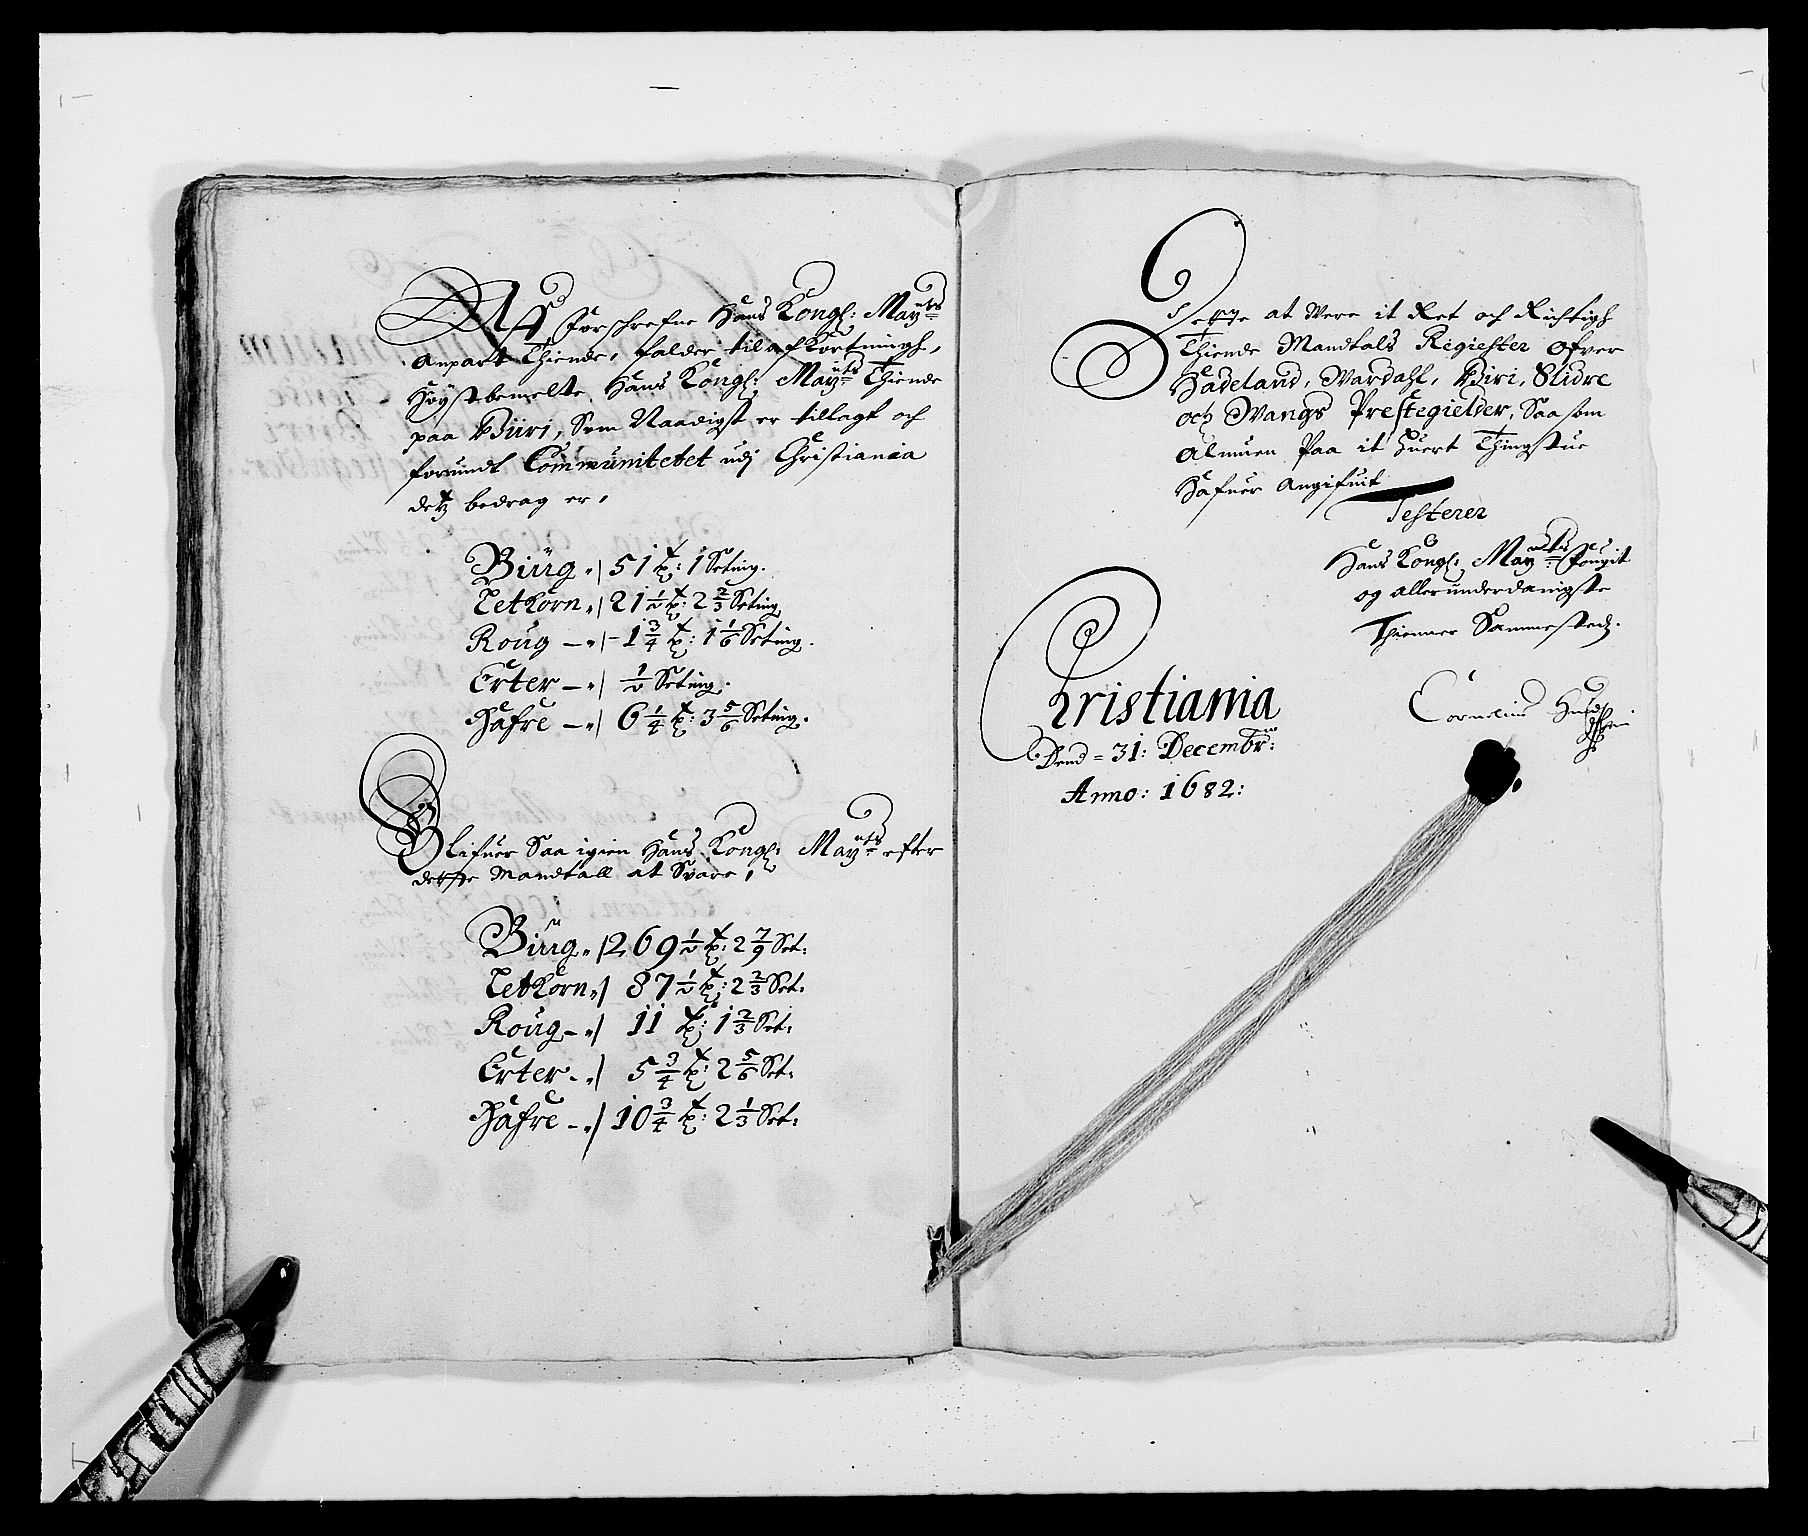 Aff forschrefne Hans Kongl: Mayts
Anpart Thiende, falder til afkortningh,
Høystbemelte Hans Kongl: Mayts Thiende
paa Biiri, Som Naadigst er tillagt och
forundt Communitetet udj Christiania
detz bedrag er,
Biüg „ 51 tr: 1 Setting.
Letkorn „ 21 ½ tr: 2 2/3 Setting
Roüg – „ 1 3/4 tr: 1 1/6 Setting.
Erter – „ ½ Setting.
Hafre – „ 6 1/4 tr: 3 5/6 Setting.
Blifuer Saa igien Hans Kongl: Mayts efter
dette Mandtall at Svare,
Biüg „ 269 ½ tr: 2 7/9 Set:
Letkorn „ 87 ½ tr: 2 2/3 Set:
Roüg – „ 11 tr: 1 2/3 Set:
Erter – „ 5 3/4 tr: 2 5/6 Set:
Hafre – „ 10 3/4 tr: 2 1/3 Set:
Dette at Were it Ret och Richtigh
Thiende Mandtals Regiester Ofver
Hadeland, Wardahl, Biri, Slidre
och Wangs Prestegielder, Saa som
Almuen Paa it huert Thingstue
Hafuer Angifuit
Testerer
Hans Kongl: Mayts Fougit
og allerunderdanigste
Thienner Sammestedz.
Christiania
Dend = 31: Decembr:
Anno: 1682:
Cornelius